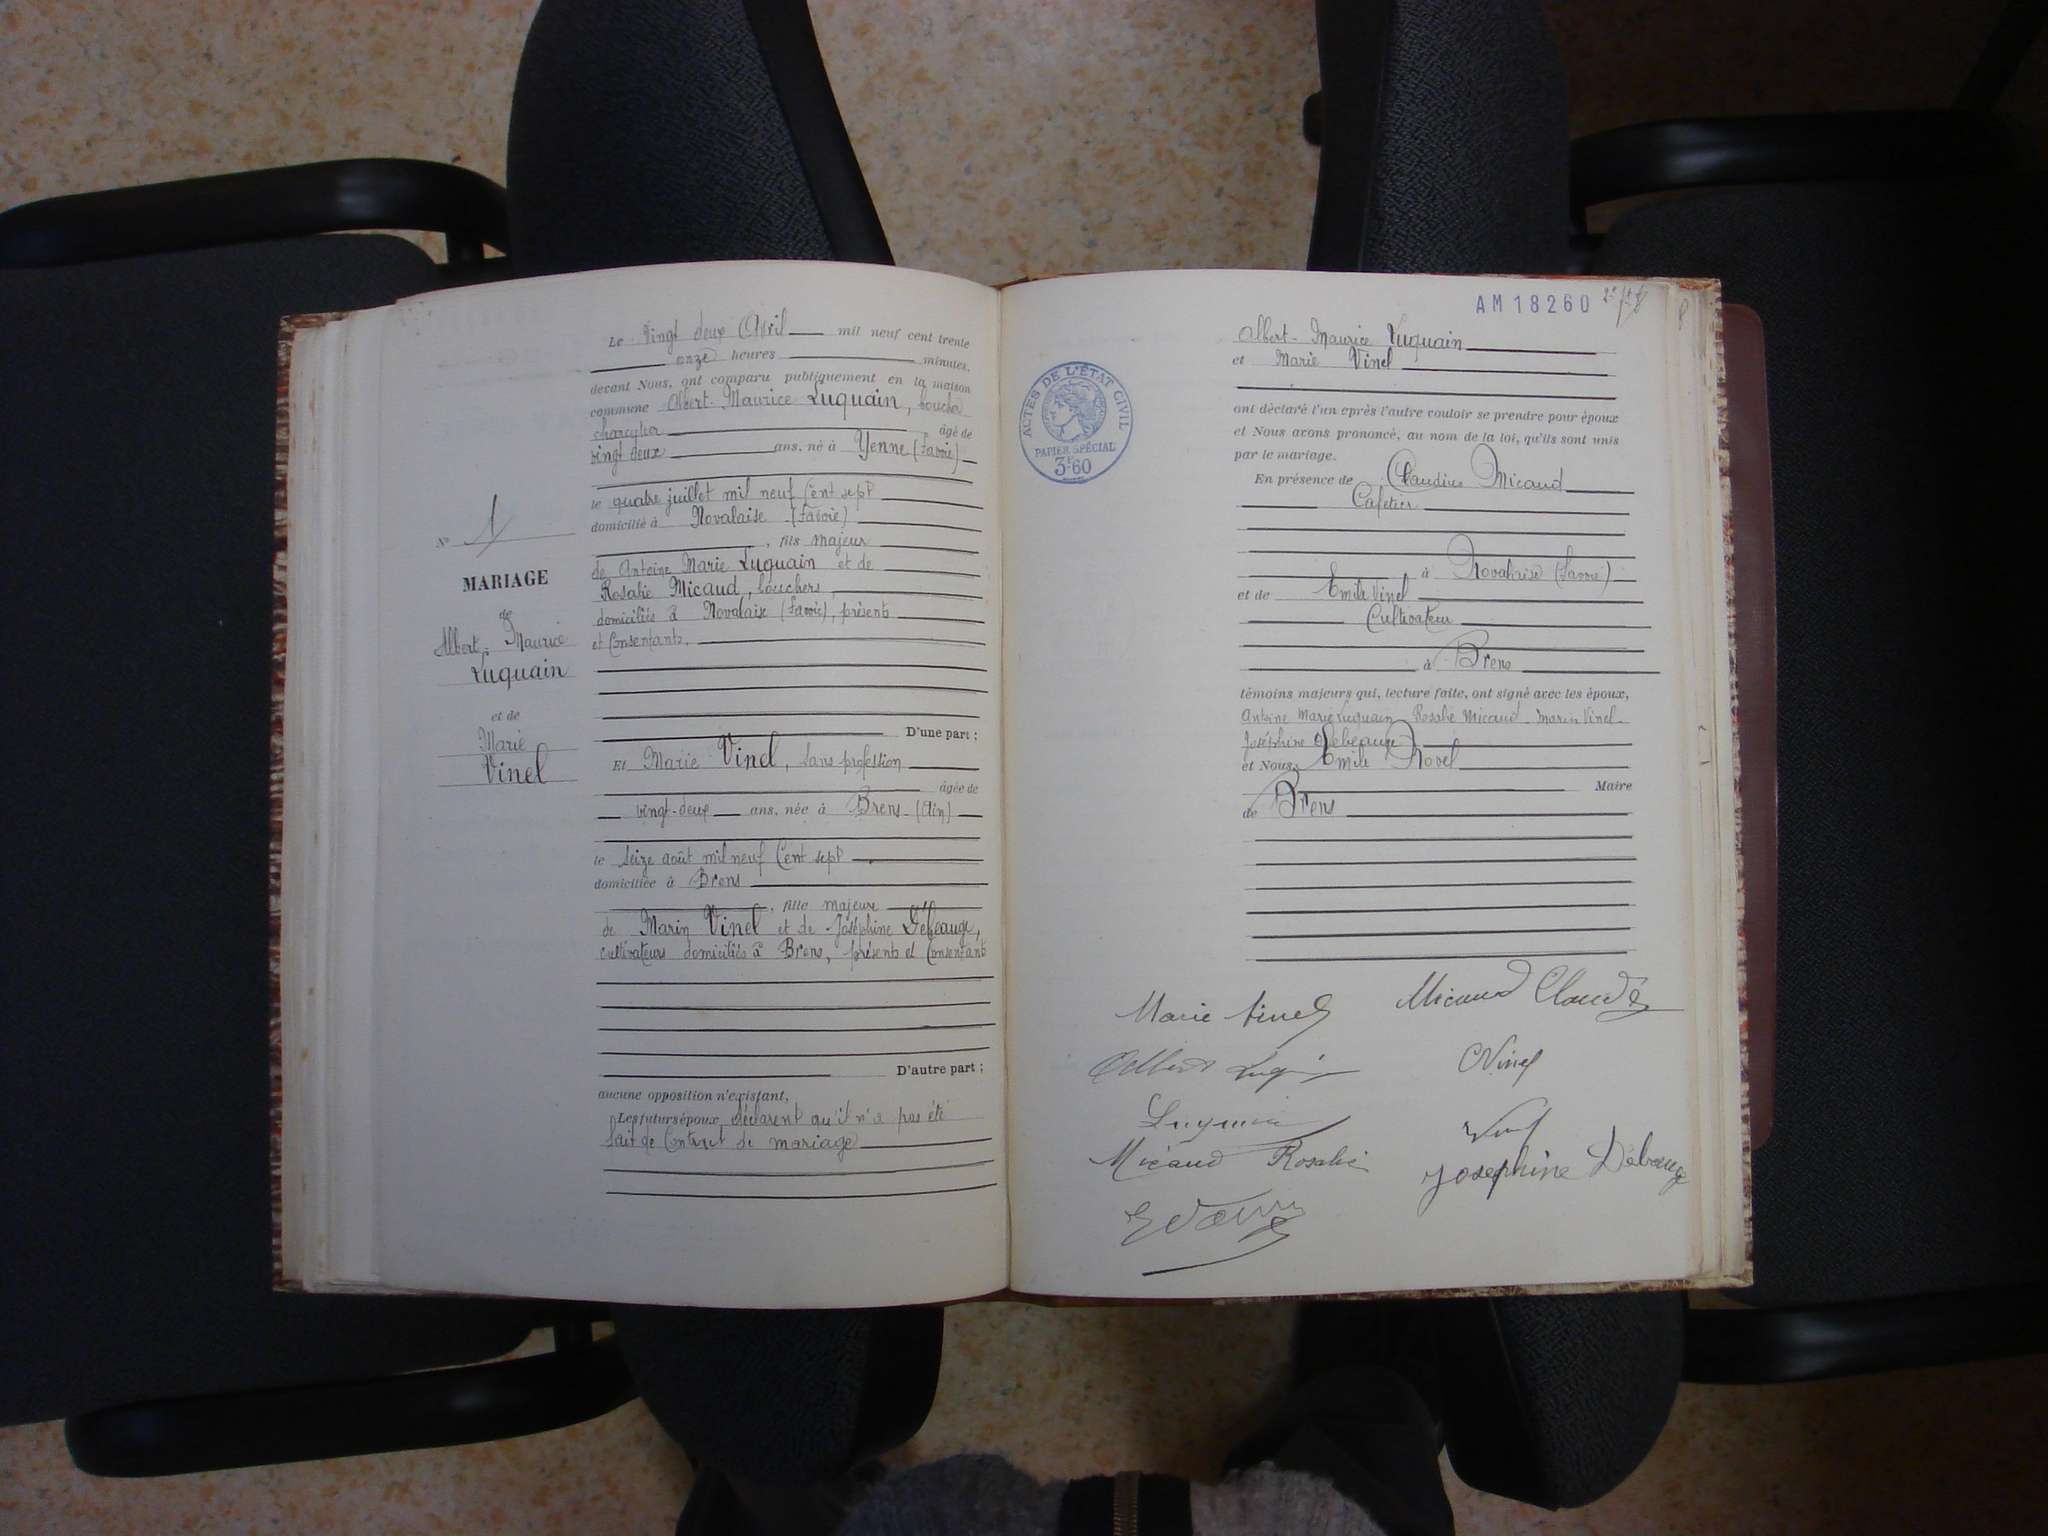 Le Vingt deux Avril mil neuf cent trente
onze heures minutes,
devant Nous, ont comparu publiquement en la maison
commune Albert-Maurice Luquain, boucher
charcutier âgé de
vingt deux ans, né à Yenne (Savoie)
le quatre juillet mil neuf Cent sept
domicilié à Novalaise (Savoie)
, fils majeur
de Antoine Marie Luquain et de
Rosalie Micaud, bouchers
domiciliés à Novalaise (Savoie), présents
et Consentants.
D'une part ;
Et Marie Vinel, sans profession
âgée de
vingt-deux ans, née à Brens (Ain)
le seize août mil neuf Cent sept
domiciliée à Brens
, fille majeure
de Marin Vinel et de Joséphine Débeauge,
cultivateurs domiciliés à Brens, présents et Consentants
D'autre part ;
aucune opposition n'existant,
Les futurs époux déclarent qu'il n'a pas été
fait de Contract de mariage
N° 1
MARIAGE
de
Albert-Maurice
Luquain
et de
Marie
Vinel
AM 18260
Albert-Maurice Luquain
et Marie Vinel
ACTES DE L'ÉTAT CIVIL
PAPIER SPÉCIAL
3F60
ont déclaré l'un après l'autre vouloir se prendre pour époux
et Nous avons prononcé, au nom de la loi, qu'ils sont unis
par le mariage.
En présence de Claudius Micaud
Cafetier
à Novalaise (Savoie)
et de Emile Vinel
Cultivateur
à Brens
témoins majeurs qui, lecture faite, ont signé avec les époux,
Antoine Marie Luquain Rosalie Micaud Marin Vinel
Joséphine Débeauge
et Nous, Emile Novel
Maire
de Brens
Marie Vinel Micaud Claudius
Albert Luquain Vinel
Luquain Vinel
Micaud Rosalie Josephine Débeauge